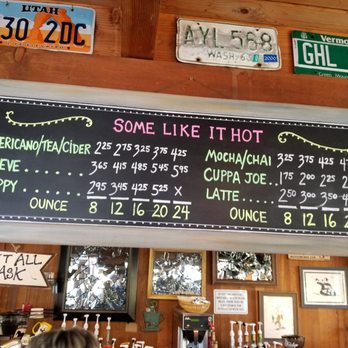 UTAH
30 2DC
AYL 568
WASH
2000
Vermo
GHL
SOME LIKE IT HOT
ERICANO/TEA/CIDER 225 275 325 375 425
EVE ..... 365 415 485 545 595
PPY ..... 295 345 425 525 X
OUNCE 8 12 16 20 24
MOCHA/CHAI 325 375 425
CUPPA JOE... 175 200 225
LATTE ..... 250 300 350
OUNCE 8 12 16 20
T ALL
ASK